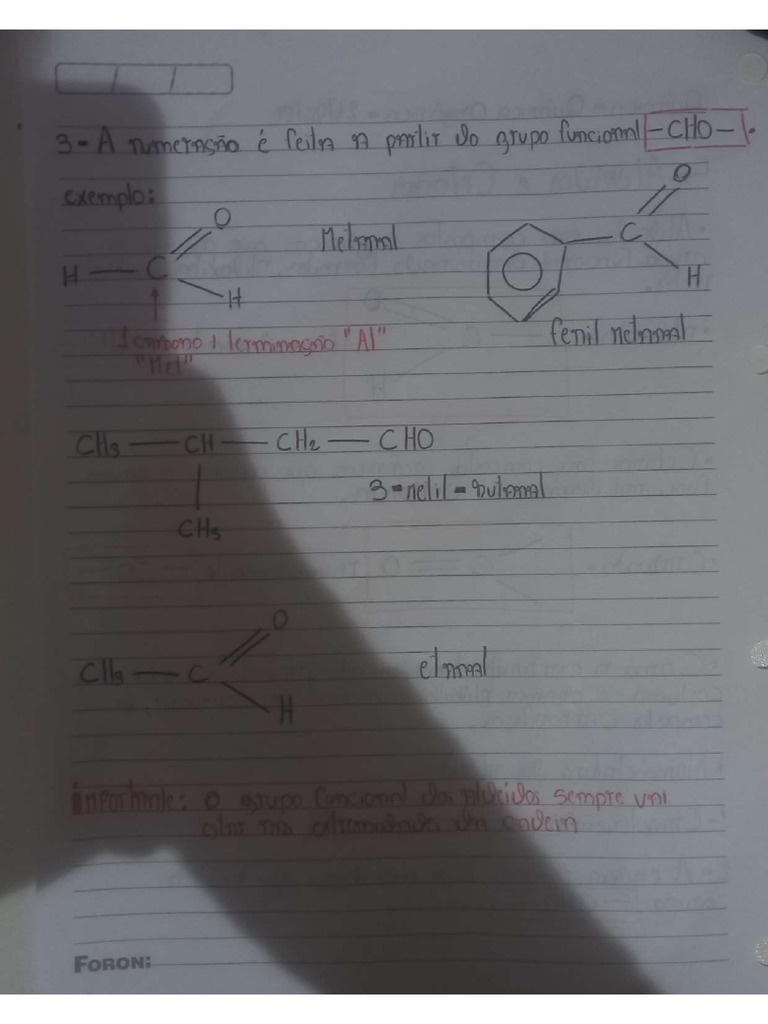 3- A numeração é feita a partir do grupo funcional -CHO-.
exemplo:
O
C
H — C
H
Metanal
O
C
H
1 carbono + terminação "Al"
"Met"
fenil metanal
CH3 — CH — CH2 — CHO
CH3
3-metil-butanal
O
CH3 — C
H
etanal
importante: O grupo funcional dos aldeídos sempre vai
estar na extremidade da cadeia
FORON: